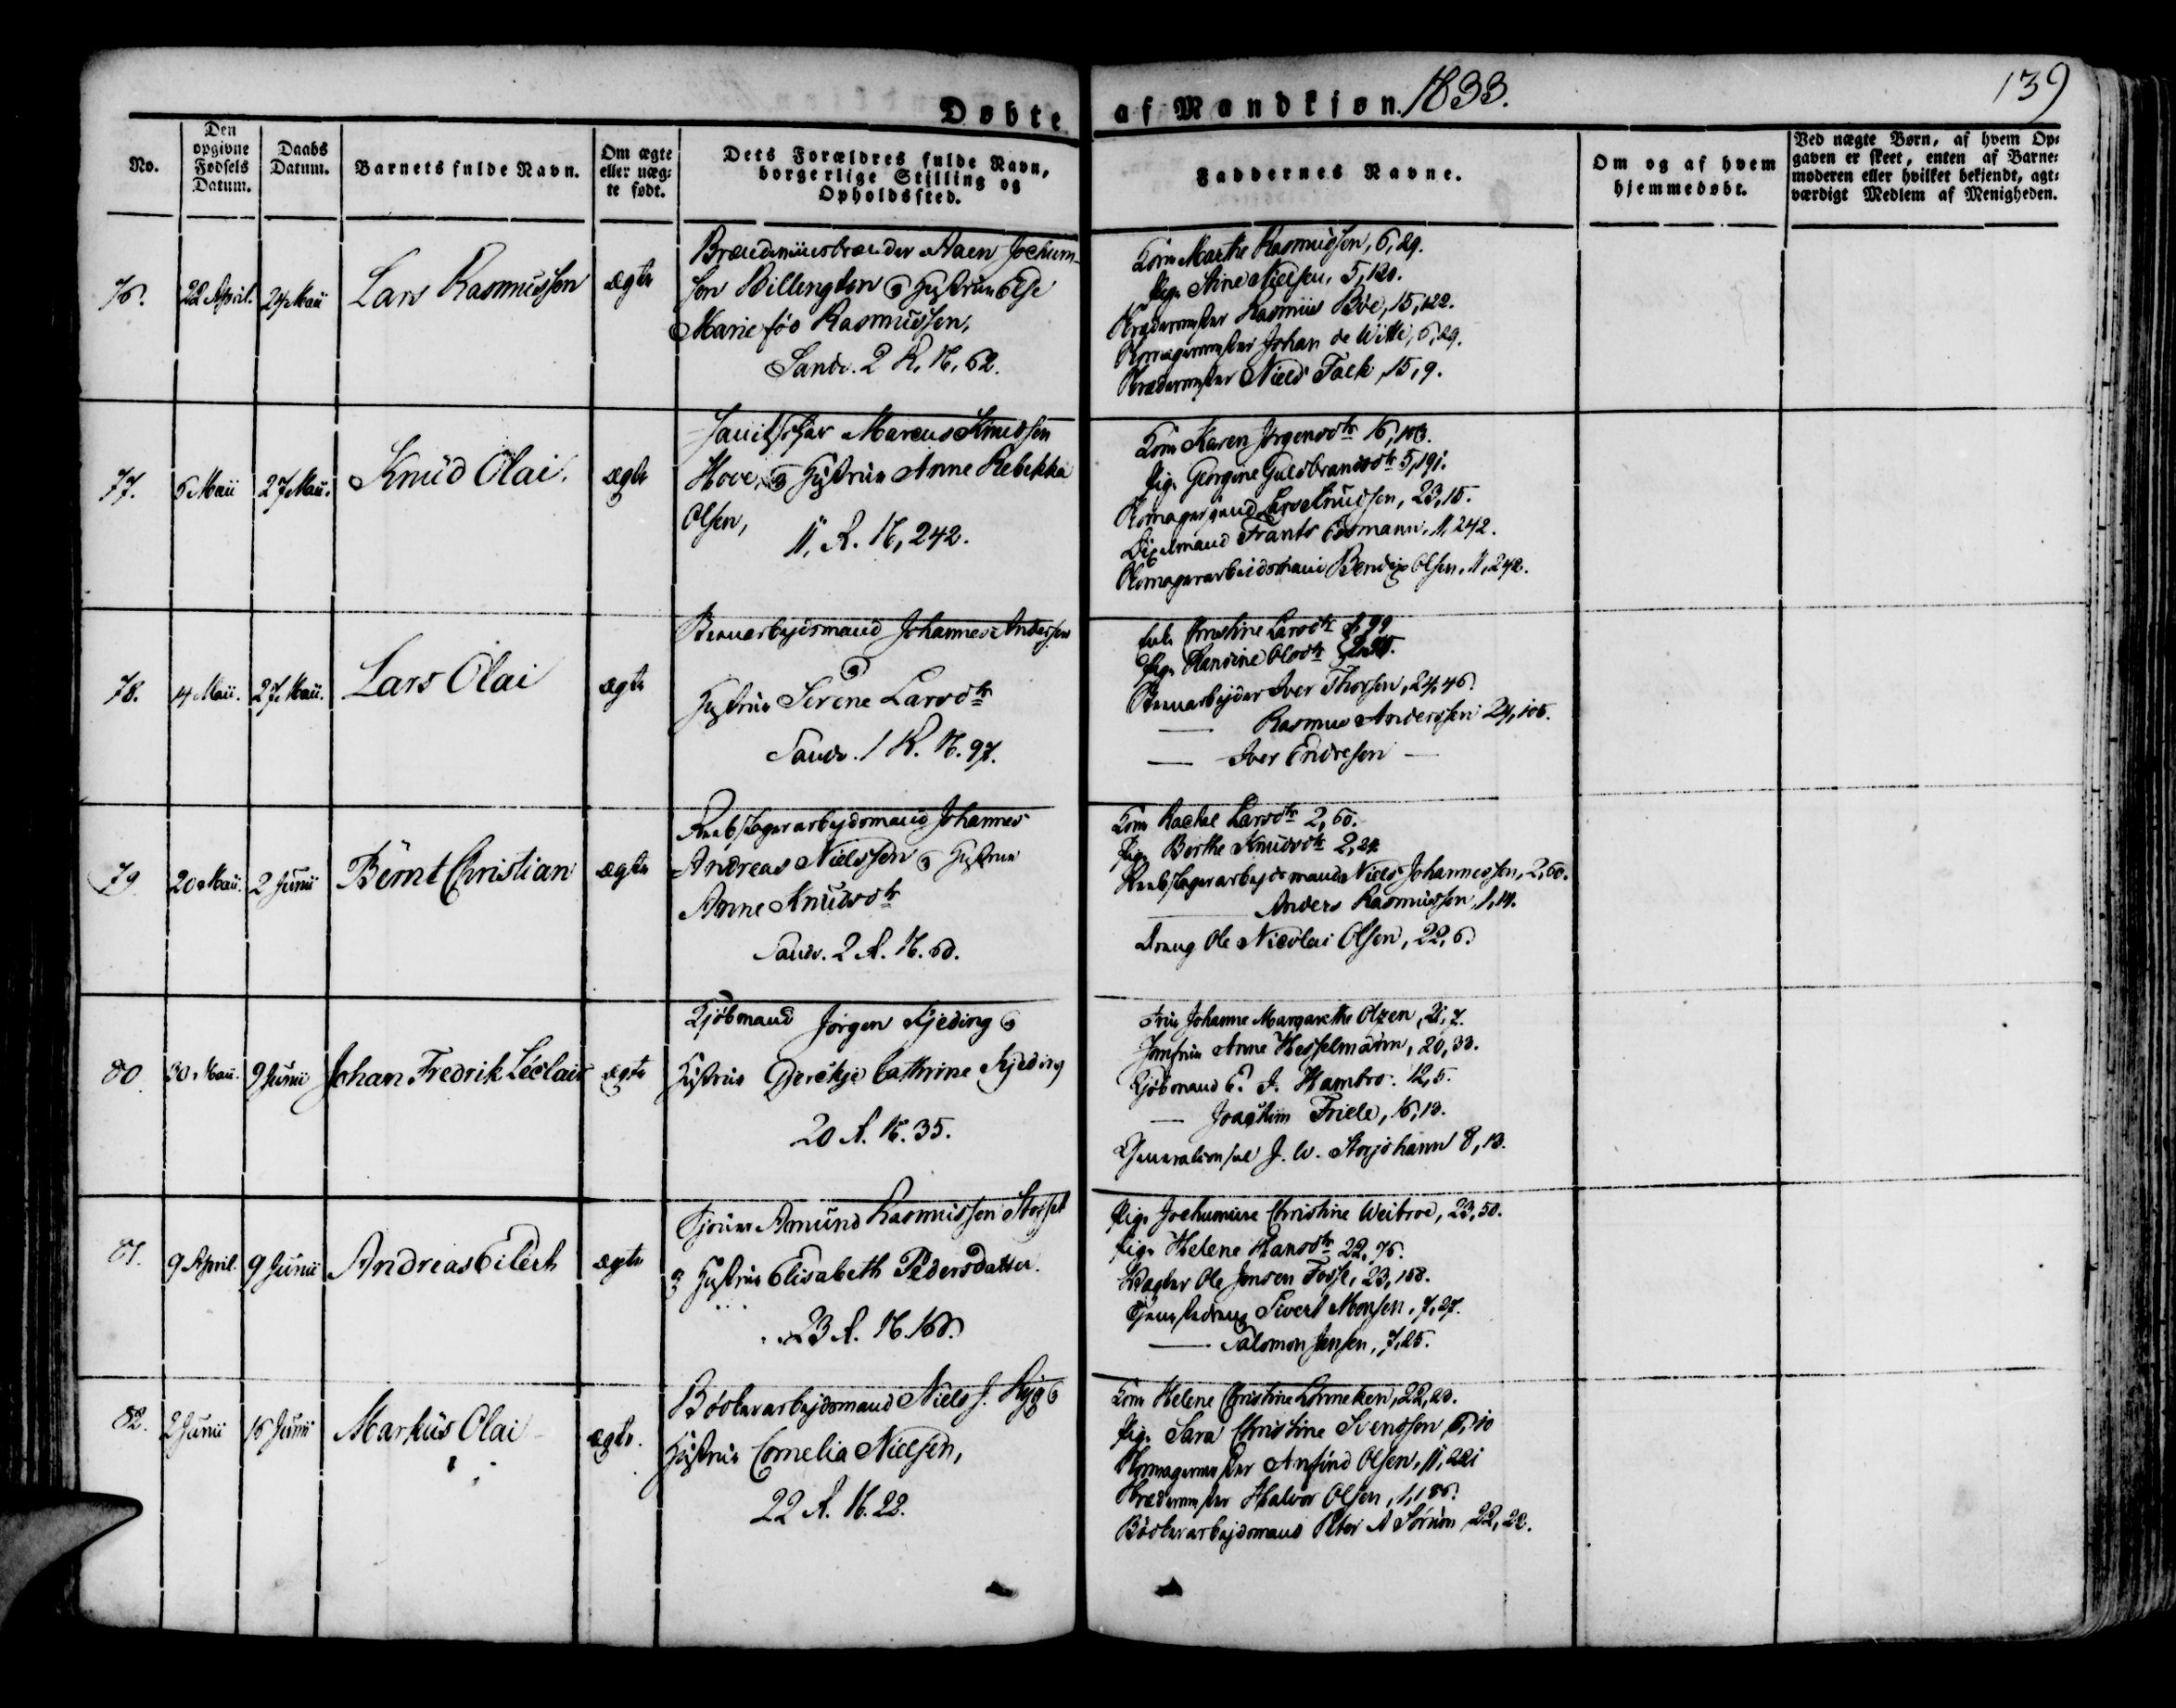 Døbte af Mandkjøn. 1833.
139
No.
Den opgivne Fødsels Datum.
Daabs Datum.
Barnets fulde Navn.
Om ægte eller uæg-
te født.
Dets Forældres fulde Navn,
borgerlige Stilling og
Opholdssted.
Faddernes Navne.
Om og af hvem
hjemmedøbt.
Ved uægte Børn, af hvem Op-
gaven er skeet, enten af Barne-
moderen eller hvilket bekjendt, agt-
værdigt Medlem af Menigheden.
76.
22 April.
27 Maii
Lars Rasmussen
ægte
Jochum-
sen Billington & Hustrue Else
Marie fød Rasmussen,
Sandv. 2 R. N. 62.
Kone Marthe Rasmussen, 6, 29.
Pige Stine Nielsen, 5, 120.
Skrædermester Rasmus Böe, 15, 122.
Skomagermester Johan de Witte, 6, 29.
Skrædermester Niels Falck, 15, 9.
77.
6 Maii
27 Maii.
Knud Olai.
ægte
Marcus Knudsen
Hove, & Hustrue Anne Rebekka
Olsen,
11. R. N, 242.
Kone Karen Jørgensdtr 16, 103.
Pige Georgine Guldbrandsdtr 5, 191.
Skomagersvend Lars Knudsen, 23, 15.
Frants 11, 242.
Skomagerarbeidsmand Bendix Olsen, 11, 242.
78.
14 Maii.
27 Maii.
Lars Olai
ægte
Johannes Andersen
&
Hustrue Serene Larsdtr
Sandv. 1 R. N. 97.
Enke Ernstine Larsdtr 1, 99
Pige Randine Olsdtr
Iver Thorsen, 24, 46.
— Rasmus Anderssen 24, 105.
— Iver Endresen —
79.
20 Maii.
2 Junii
Bernt Christian
ægte
Reebslagerarbejdsmand Johannes
Andreas Nielssen & Hustrue
Anne Knudsdtr
Sandv. 2 R. N. 60.
Kone Rachel Larsdtr 2, 60.
Pige Berthe Knudsdtr 2, 24
Reebslagerarbejdsmand Niels Johannessen, 2, 60.
Anders Rasmussen, 1, 14.
Dreng Ole Nicolai Olsen, 22, 6.
80.
30 Maii.
9 Junii
Johan Fredrik Léclair
ægte
Kjöbmand Jörgen Kjeding &
Hustrue Gjerckje Cathrine Kjeding
20 R. N. 35.
Frue Johanne Margarethe Olzen, 21, 7.
Jomfrue Anne Hesselmann, 20, 33.
Kjöbmand E. J. Hambro. 12, 5.
— Joachim Friele, 16, 13.
Generalconsul J. W. Storjohann 8, 13.
81.
9 April.
9 Junii
Andreas Eilert
ægte
Amund Rasmussen
& Hustrue Elisabeth Pedersdatter.
23 R. N. 168.
Pige Jochumine Christine Weibroe, 23, 50.
Pige Helene Hansdtr 22, 76.
Vægter Ole Jensen Fosse, 23, 168.
Tjenestedreng Sivert Monsen, 7, 27.
— Salomon Jensen, 7, 25.
82.
2 Junii
16 Junii
Markus Olai
ægte.
Bödkerarbejdsmand Niels J. Ryg &
Hustrue Cornelia Nielsen,
22 R. N. 22.
Kone Helene Christine Lönneken, 22, 23.
Pige Sara Christine Svendsen
Skomagermester Anfind Olsen, 11, 221
Skrædermester Halvor Olsen, 1, 186.
Bödkerarbejdsmand Peter A Sörum 22, 22.